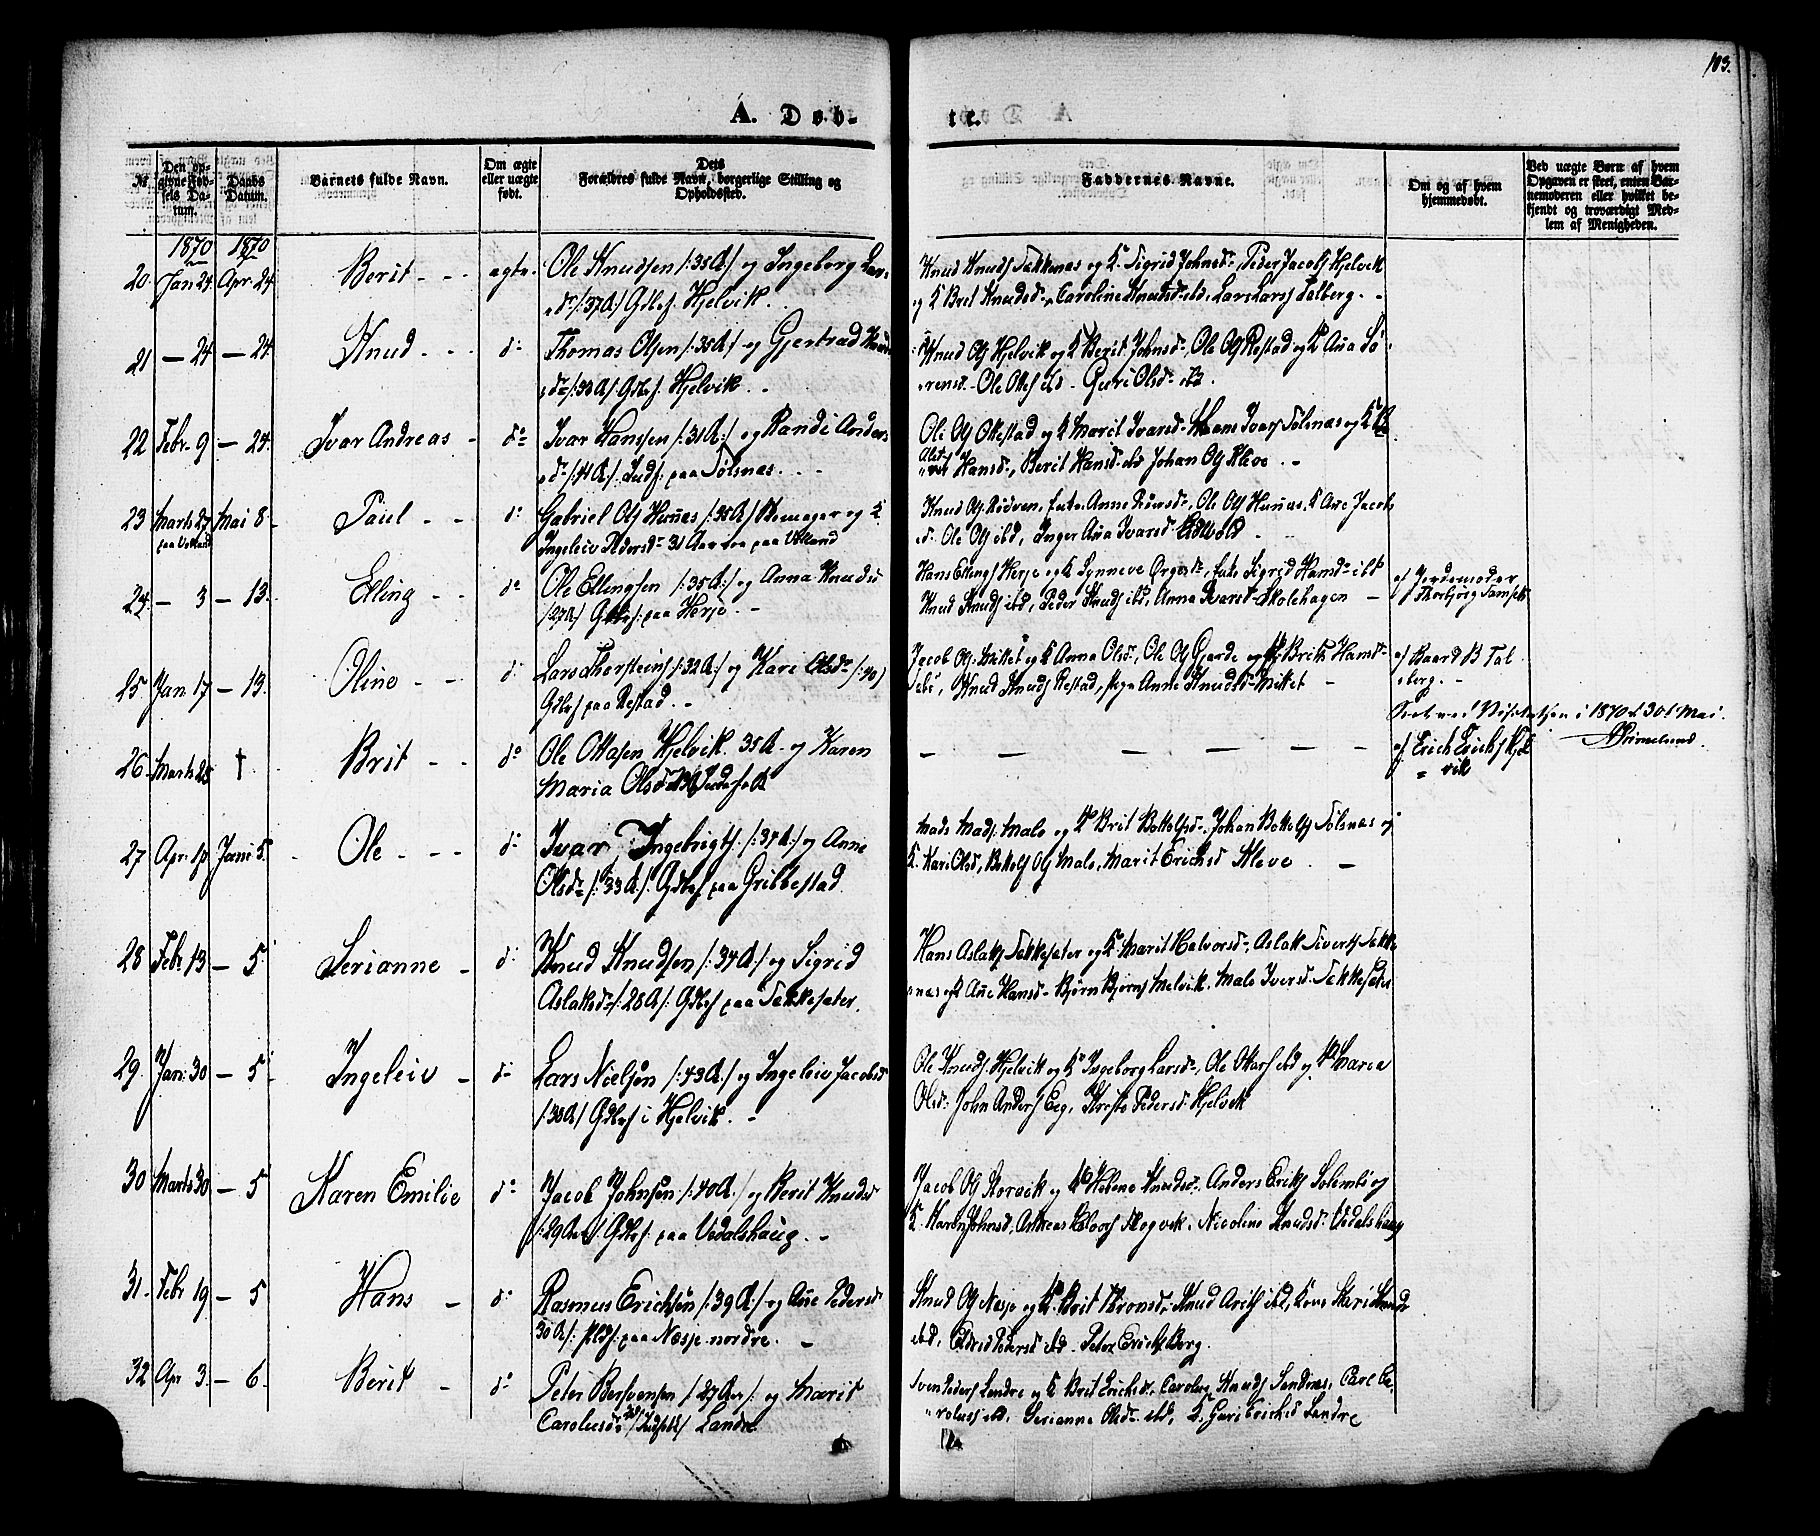 103.
A. Døb-
te.
No.
Den opgivne Fødsels Datum.
Daabs Datum.
Barnets fulde Navn.
Om ægte eller uægte født.
Dets Forældres fulde Navn, borgerlige Stilling og Opholdssted.
Faddernes Navne.
Om og af hvem hjemmedøbt.
Ved uægte Børn af hvem Opgaven er skeet, enten Barnemoderen eller hvilket bekjendt og troværdigt Medlem af Menigheden.
1870 1870
20. Jan 24. Apr. 24. Berit - - - ægte. Ole Knudsen /:35A/ og Ingeborg Lars
d. /:37A/ Gdbrf. Hjelvik.
Knud Knuds Tækkenas og K. Sigrid Johnsd., Peder Jacobs Hjelvik
og K. Brit Knudsd., Caroline Knudsd. ibd., Lars Lars Talberg. -
21 - 24 - 24. Knud - - - do Thomas Olsen /:35A/ og Gjertrud Knuds
d. /:33A/ Gdbrf. Hjelvik. -
Knud Ols Hjelvik og K. Berit Johnsd., Ole Ols Restad og K. Ana Sø-
rensd. Ole Ottes ibd. Guri Olsd. ibd.
22 Febr. 9 - 24. Ivar Andreas - do Ivar Hanssen /:31A:/ og Randi Anders
d. /:41A/. Indf. paa Sølsnas. - -
Ole Ols Ottestad og K. Marit Ivarsd. Hans Ivars Sølsnas og K.
Hansd., Berit Hansd. ibd. Johan Ols Kleve. -
23 Marts 27 Mai 8. Paul - - do Gabriel Ols Hernas /:38A/ og K.
paa Volland
Ingeleiv Pedersd. 31 Aar paa Volland
Knud Ols Rødven, Enke Anne, Ole Ols Hernas, K. Ane Jacobs
d. Ole Ols ibd, Inger Ana Ivarsd. Eidsvold
24. - 3 - 13. Elling - - do Ole Ellingsen /:35A:/ og Anna Knudsd
/:27A/ Gdbrf. paa Herje. -
Hans Ellings Herje og K. Synneve, Enke Sigrid Hansd. ibd
Knud Knuds ibd, Peder Knuds ibd, Anna Ivarsd. Skolehagen -
af Jordemoder
Thorbjørg Samsets
25 Jan. 17 - 13. Oline - - do Lars Thorsteins /:32A:/ og Kari Olsd. /:40/
Gdbrf paa Restad. -
Jacob Ols Mittet og K. Anna Olsd., Ole Ols Gjerde og K. Brit Hansd.
, Knud Knuds Restad, Pige Anne Knudsd. Mittet -
af Baard B Tal-
berg. -
Seet ved Visitatsen i 1870 d. 30t Mai.
26. Marts 28 † Brit - - do Ole Ottasen Hjelvik. 35A. og Karen
Maria Olsd.
- - - - -
af. Erich Erichs Hjel-
vik
27 Apr. 10 Juni 5. Ole - - - do Ivar Ingebrigts. /:37A:/ og Anne
Olsd. /:33A/. Gdbrf. paa Gribbestad.
Mads Mads. Malo og K. Brit Bottolfsd., Johan Bottolfs Sølsnas og
K. Kari Olsd, Bottolf Ols Malo, Marit Erichsd Kleve -
28 Febr. 13 - 5. Serianne - do Knud Knudsen /:34A:/ og Sigrid
Aslaksd. /:28A/. Gdbrf paa Tækkesater.
Hans Aslaks Tækkesater og K. Marit Halvorsd., Aslak Siverts Tække-
nas og K. Ane Hansd. Bjørn Bjørns Melvik. Malo Iversd. Tækkesater
29. Jan: 30 - 5. Ingeleiv - do Lars Nielsen /:43A:/ og Ingeleiv Jacobsd
/:38A/ Gdbrf i Hjelvik. -
Ole Knuds. Hjelvik og K. Ingeborg Larsd., Ole Ottas ibd og K. Maria
Olsd. John Anders Eeg, Pedersd. Hjelvik
30 Marts 30 - 5 Karen Emilie do Jacob Johnsen /:40A:/ og Berit Knudsd
/:29A:/. Gdbrf. paa Vedalshaug. -
Jacob Ols Storvik og K. Helene Knudsd., Anders Eriks Solemli og
K. Karen Johnsd, Andreas Skogvik, Nicoline Knudsd. Vedalshaug
31. Febr. 19 - 5 Hans - do Rasmus Erichsen /:39A:/ og Ane Pedersd
30A/: paa Næsje nordre. -
Knud Ols Næsje og K. Brit Thronsd., Knud ibd, Kone Kari Knudsd
ibd, Pedersd ibd. Peter Erichs Berg.
32 Apr 3. - 6. Berit - do Peter Bersvensen /:27A/: og Marit
Carolusd. Landre
Sven Peders Landre og K. Brit Erichsd., Carolus Knuds Sandnas, Carl Ca-
rolus ibd. Serianne Olsd. ibd, K. Guri Erichsd Landre